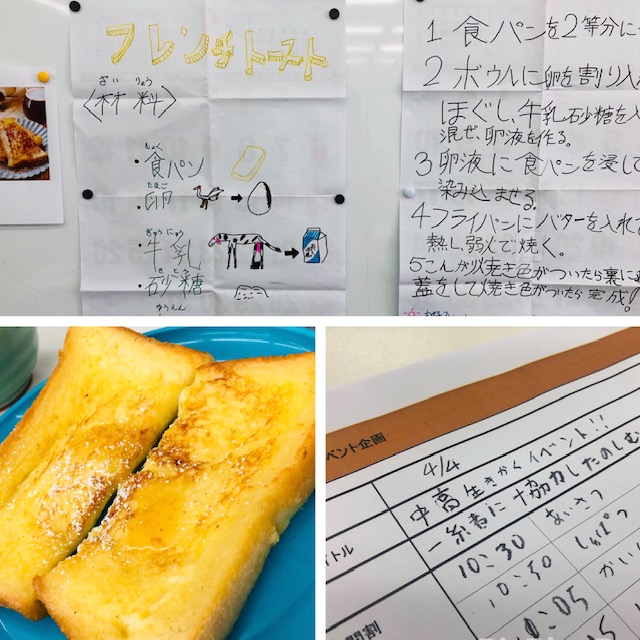 フレンチトースト
ざいりょう
〈材料〉
しょく
・食パン
たまご
・卵
ぎゅうにゅう
・牛乳
さとう
・砂糖
1 食パンを2等分に
2 ボウルに卵を割り入
ほぐし、牛乳、砂糖を入
混ぜ、卵液を作る。
3 卵液に食パンを浸して
染み込ませる。
4 フライパンにバターを入れ
熱し弱火で焼く。
5 こんがり焼き色がついたら裏に
蓋をして焼き色がついたら完成!
ベント企画
4/4
中高生きかくイベント!!
イトル
一緒に協力したのしむ
10:30 あいさつ
10:50 しゅっぱつ
0:05 かい
間割